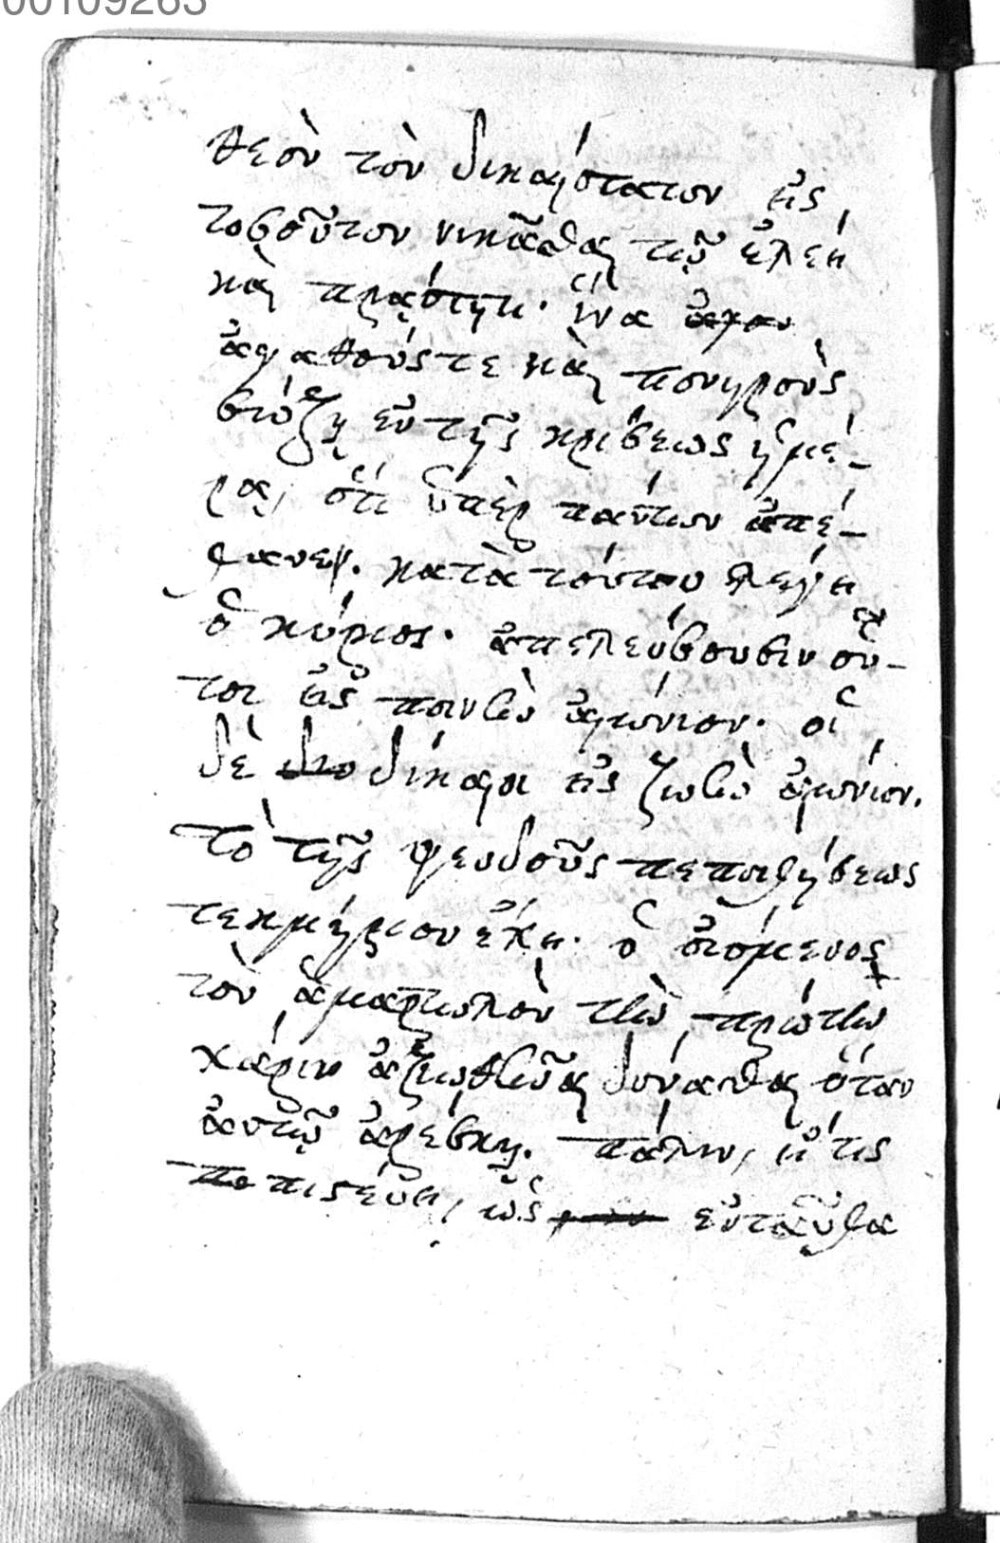 00109263
θεὸν τὸν δικαιότατον εἰς
τοσοῦτον νικᾶσθαι τῷ ἐλέει
καὶ πραότητι. ἵνα
ἀγαθούς τε καὶ πονηροὺς
σώζῃ ἐν τῆς κρίσεως ἡμέ-
ρᾳ, ὅτι ὑπὲρ πάντων ἀπέ-
θανεν. κατὰ τούτου λέγει
ὁ κύριος. ἀπελεύσουσιν οὗ-
τοι εἰς ποινὴν αἰώνιον. οἱ
δὲ δίκαιοι εἰς ζωὴν αἰώνιον.
Τὸ τῆς ψευδοῦς πεποιθήσεως
τεκμήριον ἔχει. ὁ οἰόμενος
τὸν ἁμαρτωλὸν τὴν πρώτην
χάριν ἀξιωθῆναι δύνασθαι ὅταν
αὐτῷ ἀρέσκῃ. πάλιν, εἴ τις
πιστεύει, ὡς ἐνταῦθα